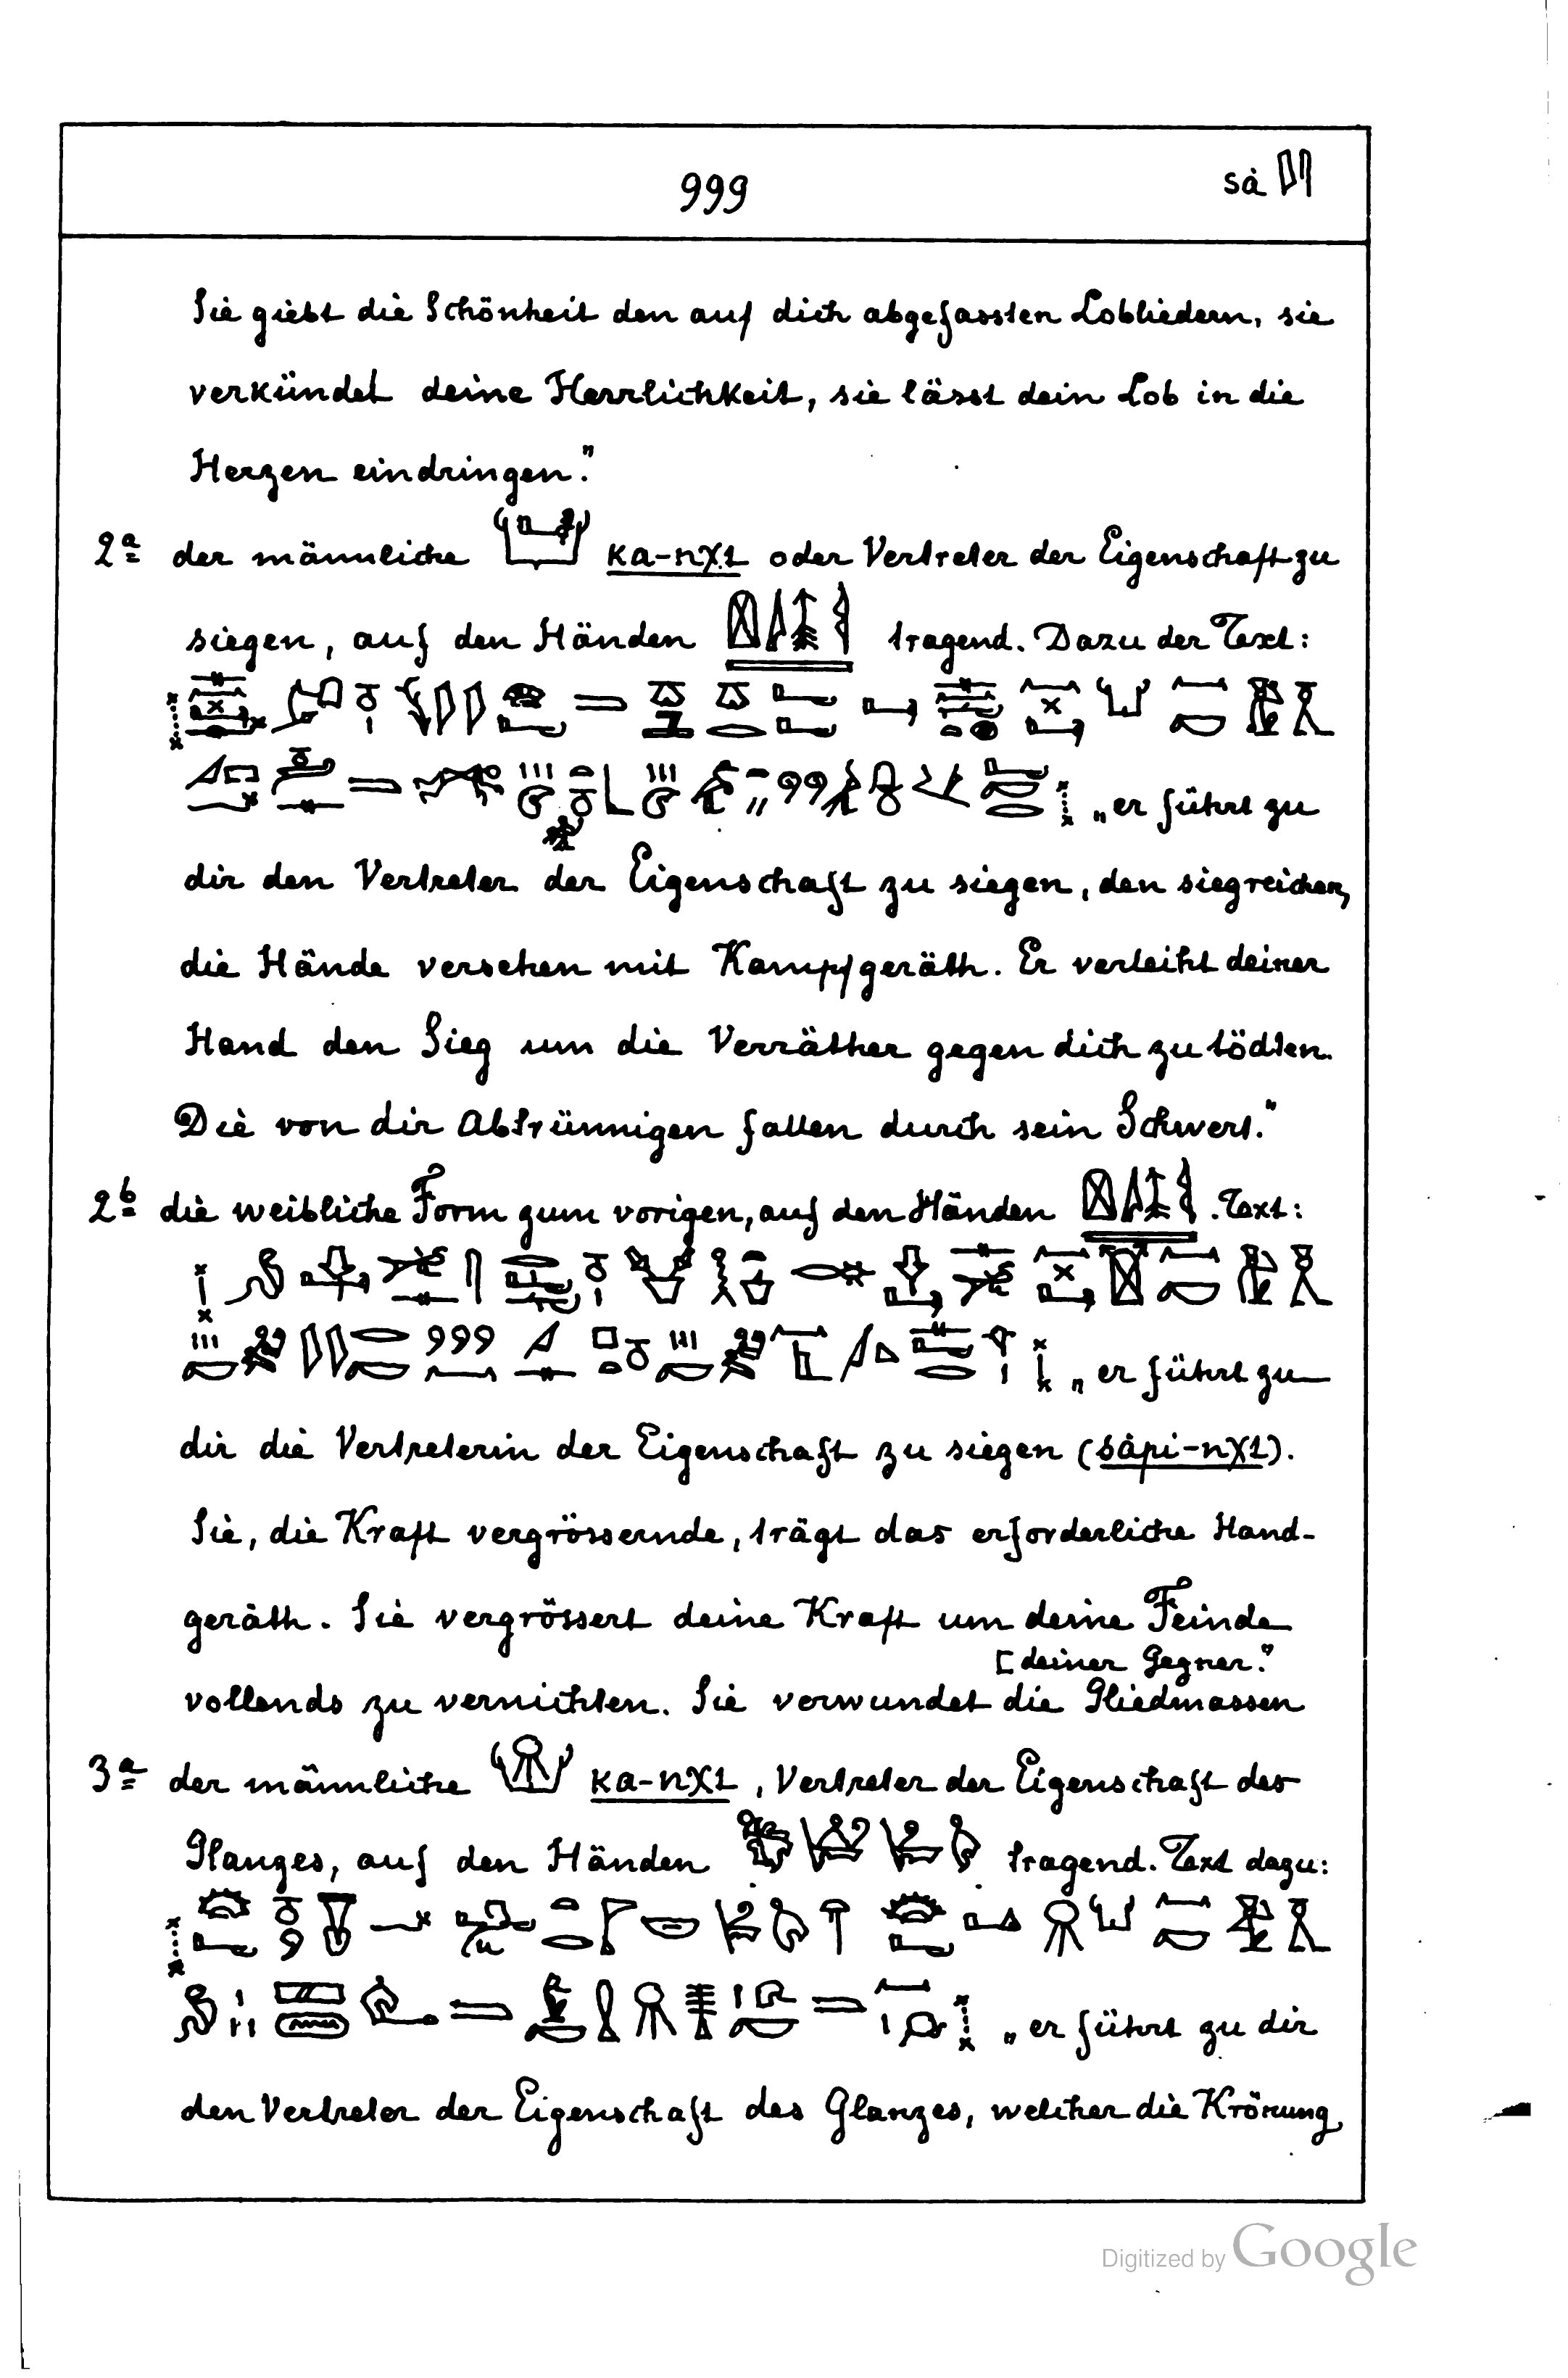 999
sȧ
Sie giebt die Schönheit den auf dich abgefassten Lobliedern, sie
verkündet deine Herrlichkeit, sie lässt dein Lob in die
Herzen eindringen."
2a der männliche ka-nχt oder Vertreter der Eigenschaft zu
siegen, auf den Händen tragend. Dazu der Text:
„er führt zu
dir den Vertreter der Eigenschaft zu siegen, den siegreichen,
die Hände versehen mit Kampfgeräth. Er verleiht deiner
Hand den Sieg um die Verräther gegen dich zu tödten.
Die von dir Abtrünnigen fallen durch sein Schwert."
2b die weibliche Form zum vorigen, auf den Händen . Text:
„er führt zu
dir die Vertreterin der Eigenschaft zu siegen (sȧpi-nχt).
Sie, die Kraft vergrössernde, trägt das erforderliche Hand-
geräth. Sie vergrössert deine Kraft um deine Feinde
vollends zu vernichten. Sie verwundet die Gliedmassen
[deiner Gegner."
3a der männliche ka-nχt, Vertreter der Eigenschaft des
Glanzes, auf den Händen tragend. Text dazu:
„er führt zu dir
den Vertreter der Eigenschaft des Glanzes, welcher die Krönung
Digitized by Google